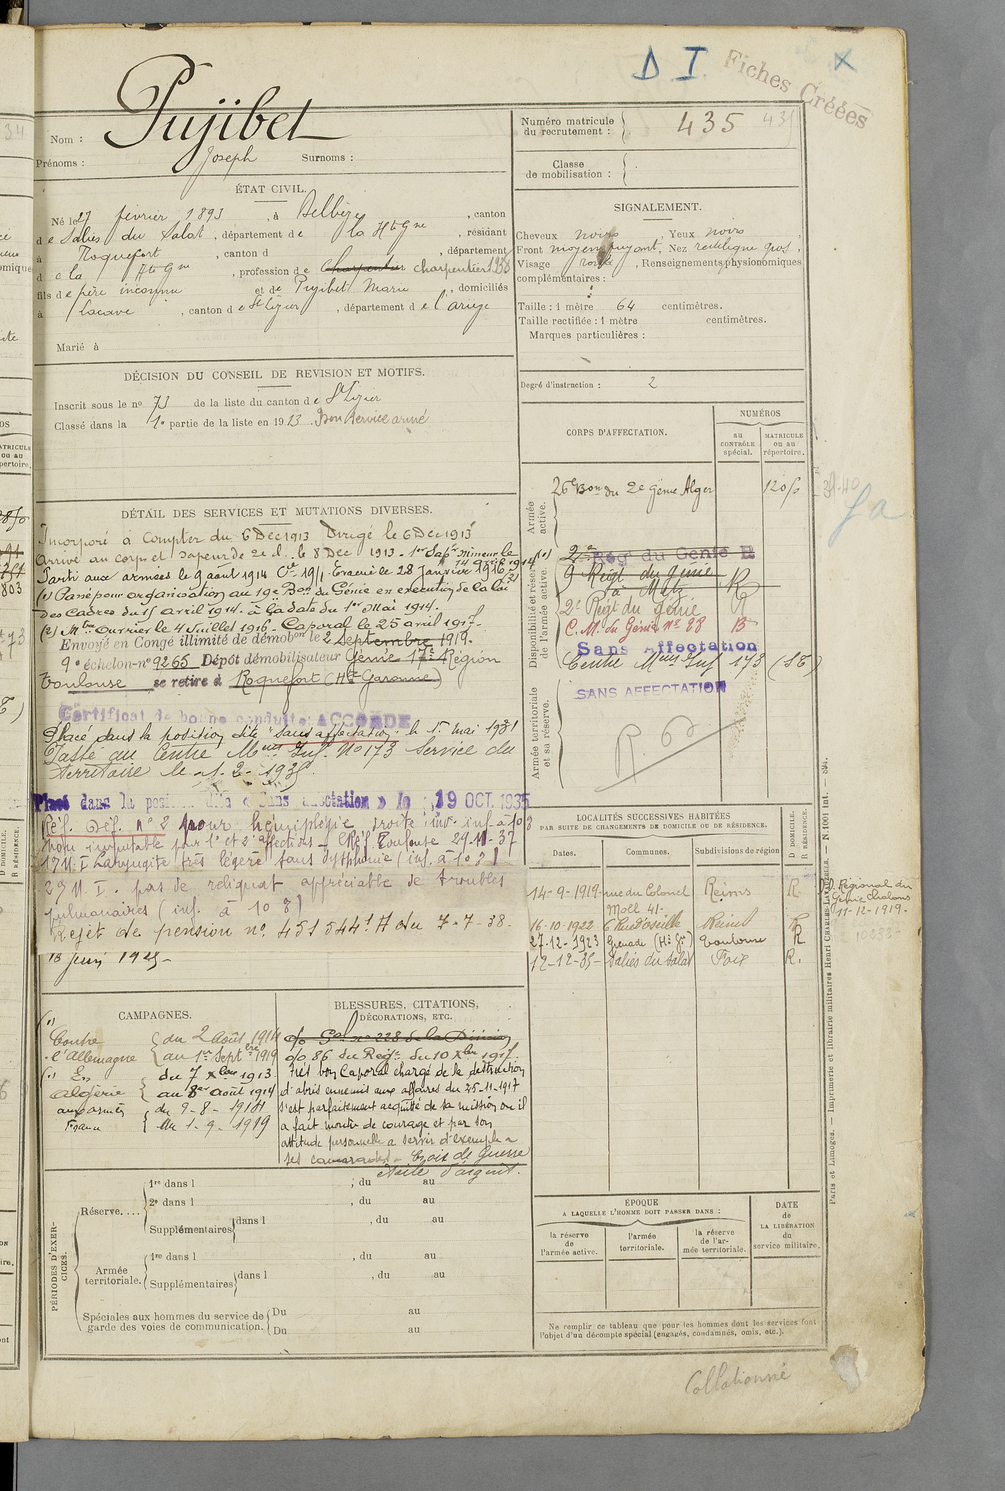 D I.
Fiches Créées
X
Nom : Pujibet
Prénoms : Joseph Surnoms :
Numéro matricule du recrutement : 435
Classe de mobilisation :
ÉTAT CIVIL.
Né le 27 février 1893, à Belbèze, canton
de Salies du Salat, département de la Hte Gne, résidant
à Roquefort, canton d , département
d e la Hte Gne, profession de Charpentier charpentier 1938
fils de père inconnu et de Pujibet Marie, domiciliés
à Lacave, canton de St Lizier, département de l'ariège
Marié à
SIGNALEMENT.
Cheveux noirs, Yeux noirs,
Front moyen fuyant, Nez rectiligne gros,
Visage rond, Renseignements physionomiques
complémentaires :
Taille : 1 mètre 64 centimètres.
Taille rectifiée : 1 mètre centimètres.
Marques particulières :
Degré d'instruction : 2
DÉCISION DU CONSEIL DE REVISION ET MOTIFS.
Inscrit sous le no 73 de la liste du canton de St Lizier
Classé dans la 1e partie de la liste en 1913. Bon service armé
DÉTAIL DES SERVICES ET MUTATIONS DIVERSES.
Incorporé à compter du 6 Dec 1913 Dirigé le 6 Dec 1913
Arrivé au corps et sapeur de 2e cl. le 8 Dec 1913. 1er Sapr mineur le 14 avril 1914
Parti aux armées le 9 août 1914 Cie 19/1. Evacué le 28 Janvier 1916
(1) Passé pour organisation au 19e Bon du Génie en exécution de la loi
des Cadres du 15 avril 1914. à la date du 1er mai 1914.
(2) Mtre Ouvrier le 4 Juillet 1916 - Caporal le 25 avril 1917.
Envoyé en Congé illimité de démobon le 2 Septembre 1919.
9e échelon - no 9265 Dépôt démobilisateur Génie 17e Région
Toulouse se retire à Roquefort (Hte Garonne)
Certificat de bonne conduite ACCORDÉ
Placé dans la position dite "sans affectation" le 1er mai 1931
Passé au Centre Meur Inf. No 173 Service du
Territoire le
Placé dans la position dite « Sans affectation » le 19 OCT. 1935
Réf. Déf. No 2 pour hémiplégie droite inv. inf à 10 %
non imputable
1º N. I Laryngite très légère sans dysphonie (inf. à 10 %)
2º N. I. pas de reliquat appréciable de troubles
pulmonaires (inf. à 10 %)
Rejet de pension no. 451544 H du 7-7-38.
CORPS D'AFFECTATION.
NUMÉROS
au contrôle spécial.
matricule ou au répertoire.
Armée active.
26e Bon du 2e Génie Alger
Disponibilité et réserve de l'armée active.
2e Régt du Génie R
9e Régt du génie R
2e Régt du génie R
C. M. du Génie no 28 R
Sans Affectation
Centre Meur Inf 173 (ST)
SANS AFFECTATION
Armée territoriale et sa réserve.
LOCALITÉS SUCCESSIVES HABITÉES
PAR SUITE DE CHANGEMENTS DE DOMICILE OU DE RÉSIDENCE.
Dates. Communes. Subdivisions de région D DOMICILE. R RÉSIDENCE.
14-9-1919 rue du Colonel Moll 41- Reims R
16-10-1922 6 Rue d'oseille Reims R
27-12-1923 Grenade (Hte Gne) Toulouse R
12-12-35 Salies du Salat Foix R.
D. Régional du
Génie Chalons
11-12-1919.
CAMPAGNES.
Contre l'Allemagne
du 2 août 1914
au 1er Septbre 1919
En Algérie
du 7 Xbre 1913
au 8 août 1914
aux armées
du 9-8-1914
France
au 1-9-1919
BLESSURES, CITATIONS, DÉCORATIONS, ETC.
o/o Gal no 228 de la Division
o/o 86 du Régt du 10 Xbre 1917.
Très bon Caporal chargé de la destruction
d'abris ennemis aux affaires du 25-11-1917
s'est parfaitement acquitté de sa mission ou il
a fait montre de courage et par son
attitude personnelle a servi d'exemple a
ses camarades - Croix de Guerre
étoile d'argent.
PÉRIODES D'EXERCICES.
Réserve....
1re dans l ; du au
2e dans l , du au
Supplémentaires dans l , du au
Armée territoriale.
1re dans l , du au
Supplémentaires dans l , du au
Spéciales aux hommes du service de garde des voies de communication.
Du au
Du au
ÉPOQUE
A LAQUELLE L'HOMME DOIT PASSER DANS :
la réserve de l'armée active.
l'armée territoriale.
la réserve de l'armée territoriale.
DATE de LA LIBÉRATION du service militaire.
Ne remplir ce tableau que pour les hommes dont les services font
l'objet d'un décompte spécial (engagés, condamnés, omis, etc.).
Collationné